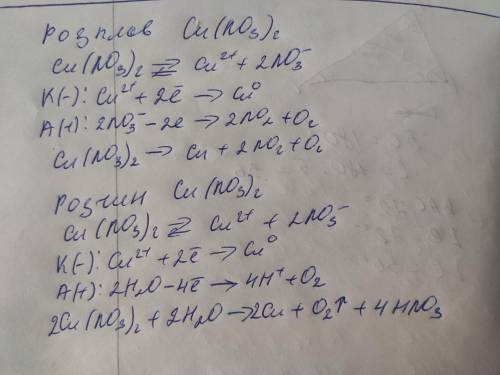 Розплав Cu(NO₃)₂
Cu(NO₃)₂ ⇄ Cu²⁺ + 2NO₃⁻
К(-): Cu²⁺ + 2ē → Cu⁰
А(+): 2NO₃⁻ - 2e → 2NO₂ + O₂
Cu(NO₃)₂ → Cu + 2NO₂ + O₂
Розчин Cu(NO₃)₂
Cu(NO₃)₂ ⇄ Cu²⁺ + 2NO₃⁻
К(-): Cu²⁺ + 2ē → Cu⁰
А(+): 2H₂O - 4ē → 4H⁺ + O₂
2Cu(NO₃)₂ + 2H₂O → 2Cu + O₂↑ + 4HNO₃